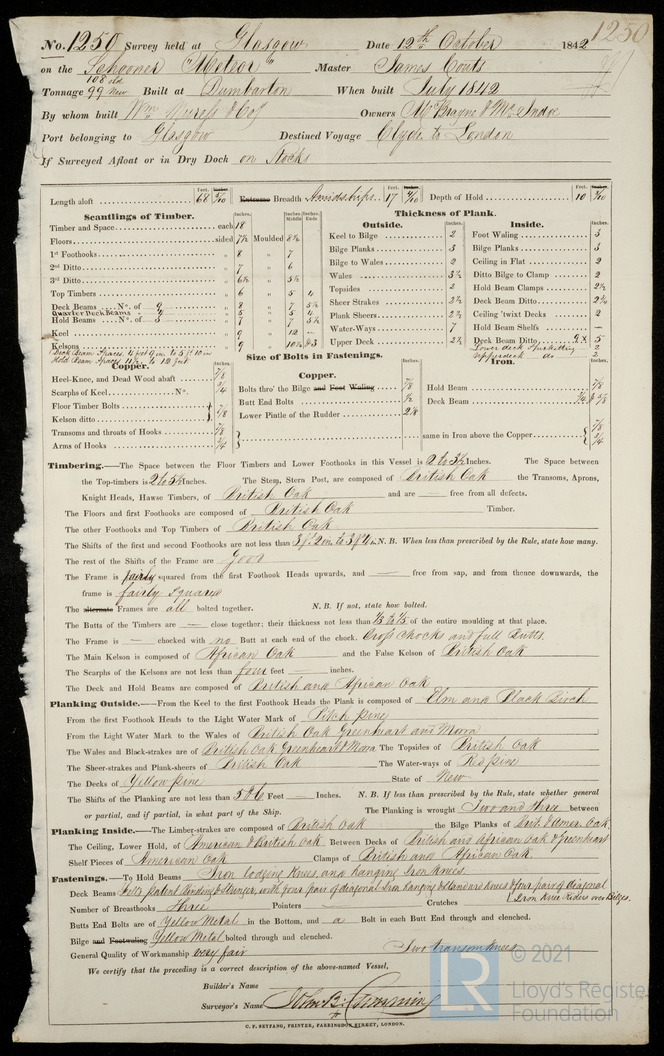 1250
No. 1250 Survey held at Glasgow Date 12th October 1842
on the Schooner "Meteor" Master James Couts
108 old
Tonnage 99 New Built at Dumbarton When built July 1842
By whom built Wm Owners
Port belonging to Glasgow Destined Voyage Clyde to London
If Surveyed Afloat or in Dry Dock on Stocks
Length aloft 68 Extreme Breadth Amidships 17 Depth of Hold 10
Scantlings of Timber.
Timber and Space each 18
Floors sided 7½ Moulded 8½
1st Foothooks " 8 " 7
2nd Ditto " 7 " 6
3rd Ditto " 6½ " 5½
Top Timbers " 6 " 5 4
Deck Beams No. of 9 " 8 " 7 5½
Quarter Deck Beams " 4 " 5 " 5 4
Hold Beams No. of 3 " 7 " 7 5½
Keel " 9 " 12
Kelsons " 9 "
Deck Beam Spaces, 4 feet 9 in to 5 ft 10 in
Thickness of Plank.
Outside.
Keel to Bilge 2
Bilge Planks 3
Bilge to Wales 2
Wales 3½
Topsides 2
Sheer Strakes 2½
Plank Sheers 2½
Water-Ways 7
Upper Deck 2½
Inside.
Foot Waling 3
Bilge Planks 3
Ceiling in Flat 2
Ditto Bilge to Clamp 2
Hold Beam Clamps 2½
Deck Beam Ditto 2¼
Ceiling 'twixt Decks 2
Hold Beam Shelfs —
Deck Beam Ditto 9 x 5
Lower deck Spirketting 2
Upper deck do 2
Size of Bolts in Fastenings.
Copper.
Heel-Knee, and Dead Wood abaft 7/8
Scarphs of Keel No. 3/4
Floor Timber Bolts
Kelson ditto 7/8
Transoms and throats of Hooks 7/8
Arms of Hooks 3/4
Copper.
Bolts thro' the Bilge and Foot Waling 7/8
Butt End Bolts
Lower Pintle of the Rudder
Iron.
Hold Beam 7/8
Deck Beam 3/4 & 5/8
same in Iron above the Copper 7/8 3/4
Timbering.—The Space between the Floor Timbers and Lower Foothooks in this Vessel is 2 to 3½ Inches. The Space between
the Top-timbers is 2 to 5½ Inches. The Stem, Stern Post, are composed of British Oak the Transoms, Aprons,
Knight Heads, Hawse Timbers, of British Oak and are — free from all defects.
The Floors and first Foothooks are composed of British Oak Timber.
The other Foothooks and Top Timbers of British Oak
The Shifts of the first and second Foothooks are not less than 3 ft 2 in to 3 ft 4 in N.B. When less than prescribed by the Rule, state how many.
The rest of the Shifts of the Frame are Good
The Frame is fairly squared from the first Foothook Heads upwards, and — free from sap, and from thence downwards, the
frame is fairly Squared
The alternate Frames are all bolted together. N.B. If not, state how bolted.
The Butts of the Timbers are — close together; their thickness not less than ⅓ to ⅓ of the entire moulding at that place.
The Frame is — chocked with no Butt at each end of the chock. Cross chocks and full Butts.
The Main Kelson is composed of African Oak and the False Kelson of British Oak
The Scarphs of the Kelsons are not less than four feet — inches.
The Deck and Hold Beams are composed of British and African Oak
Planking Outside.—From the Keel to the first Foothook Heads the Plank is composed of Elm and Black Birch
From the first Foothook Heads to the Light Water Mark of Pitch Pine
From the Light Water Mark to the Wales of British Oak Greenheart and Mora
The Wales and Black-strakes are of British Oak Greenheart & Mora The Topsides of British Oak
The Sheer-strakes and Plank-sheers of British Oak The Water-ways of Red Pine
The Decks of Yellow Pine State of New
The Shifts of the Planking are not less than 5 & 6 Feet — Inches. N.B. If less than prescribed by the Rule, state whether general
or partial, and if partial, in what part of the Ship. The Planking is wrought Two and three between
Planking Inside.—The Limber-strakes are composed of British Oak the Bilge Planks of Brit. & Amer. Oak.
The Ceiling, Lower Hold, of American & British Oak Between Decks of British and African Oak & Greenheart
Shelf Pieces of American Oak Clamps of British and African Oak
Fastenings.—To Hold Beams Iron lodging Knees, and hanging Iron Knees.
Deck Beams Patent with four pair of diagonal Iron hanging & Standard Knees & four pair of diagonal
Iron Knee Riders over Bilges.
Number of Breasthooks Three Pointers Crutches
Butts End Bolts are of Yellow Metal in the Bottom, and a Bolt in each Butt End through and clenched.
Bilge and Footwaling Yellow Metal bolted through and clenched.
General Quality of Workmanship very fair Two transom knees
We certify that the preceding is a correct description of the above-named Vessel,
Builder's Name
Surveyor's Name John B. Cumming
C. F. SEYFANG, PRINTER, FARRINGDON STREET, LONDON.
LR © 2021
Lloyd's Register
Foundation